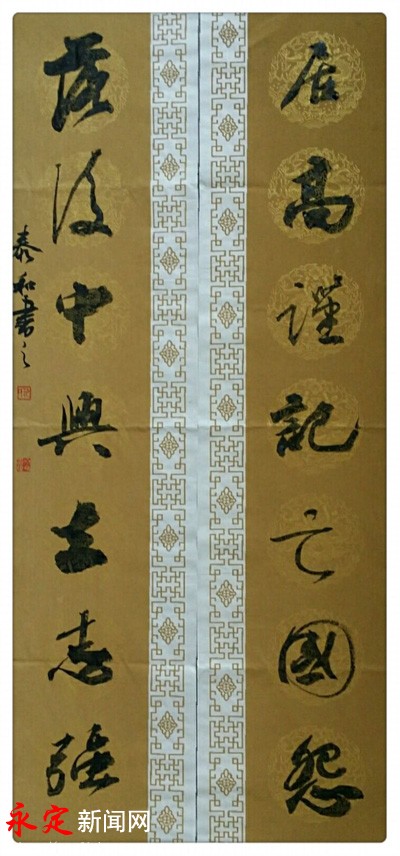 居高謹記亡國怨
落後中興立志強
泰和書之
永定新闻网